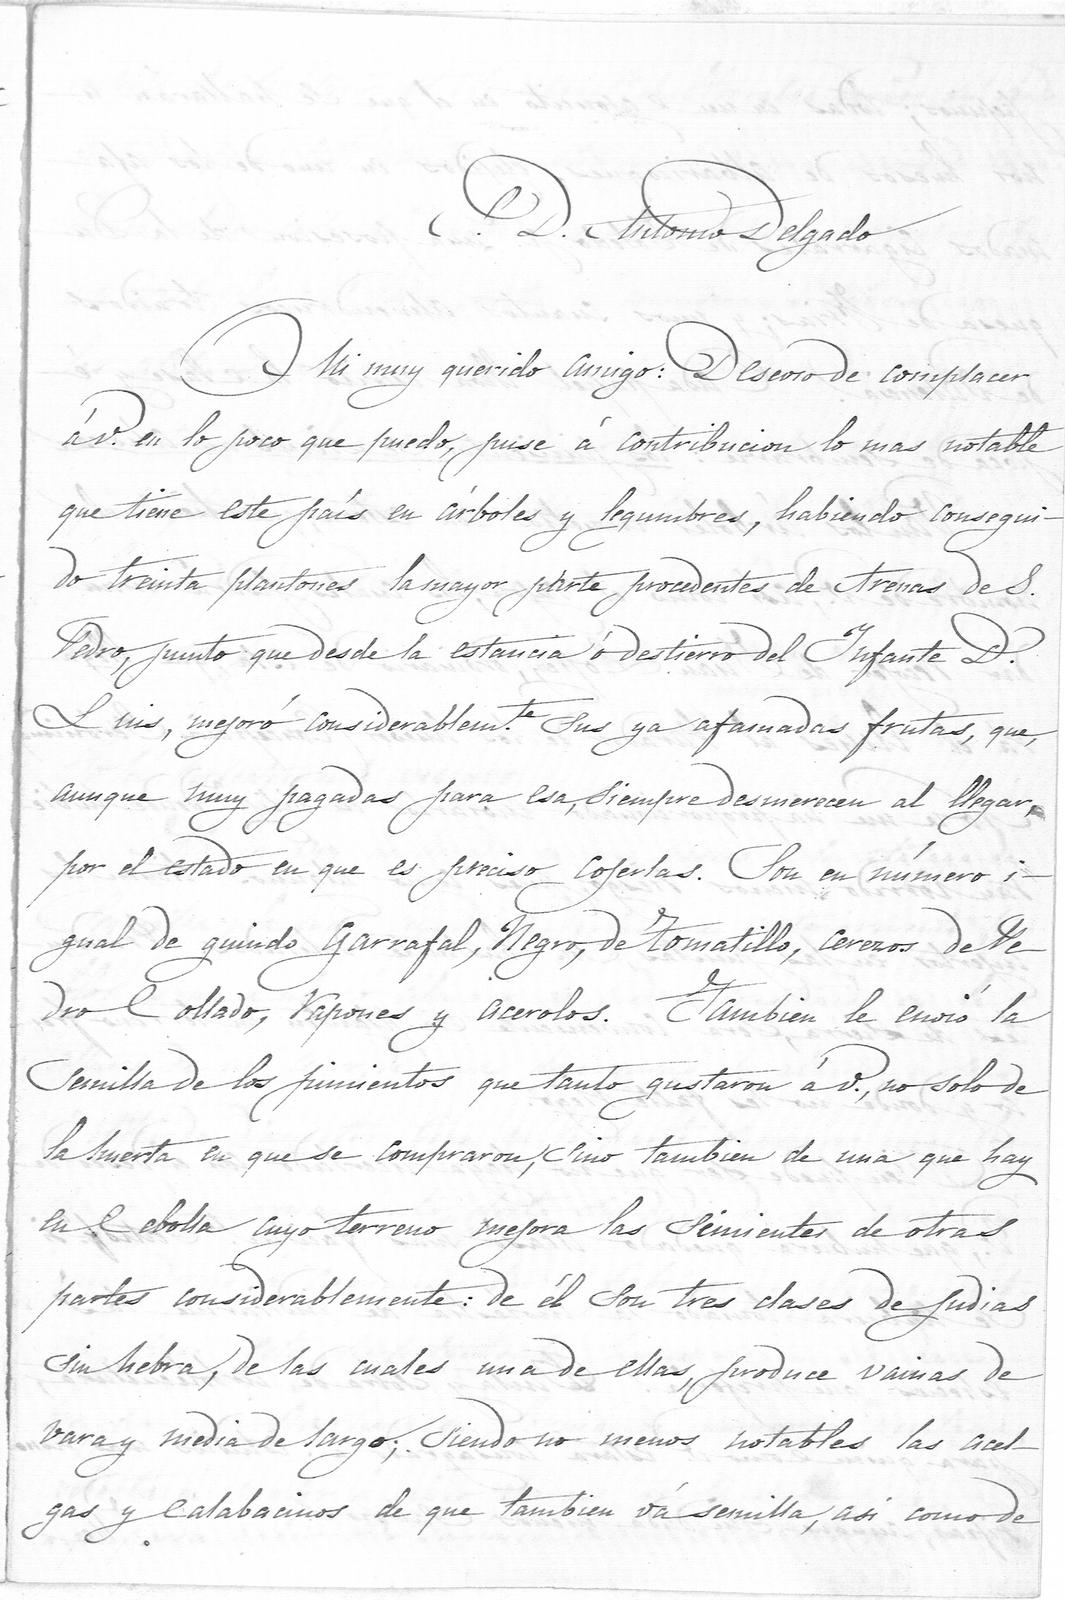 S. D. Antonio Delgado
Mi muy querido amigo: Deseoso de complacer
á V. en lo poco que puedo, puse á contribucion lo mas notable
que tiene este país en árboles y legumbres, habiendo consegui-
do treinta plantones la mayor parte procedentes de Arenas de S.
Pedro, punto que desde la estancia ó destierro del Infante D.
Luis, mejoró considerablem.te sus ya afamadas frutas, que,
aunque muy pagadas para esa, siempre desmerecen al llegar,
por el estado en que es preciso cojerlas. Son en número i-
gual de guindo Garrafal, Negro, de Tomatillo, cerezos de Pe-
dro Collado, Papones y acerolos. Tambien le envió la
semilla de los pimientos que tanto gustaron á V., no solo de
la huerta en que se compraron, sino tambien de una que hay
en Cebolla cuyo terreno mejora las simientes de otras
partes considerablemente: de él son tres clases de judias
sin hebra, de las cuales una de ellas, produce vainas de
vara y media de largo; siendo no menos notables las acel-
gas y calabacinos de que tambien vá semilla, asi como de